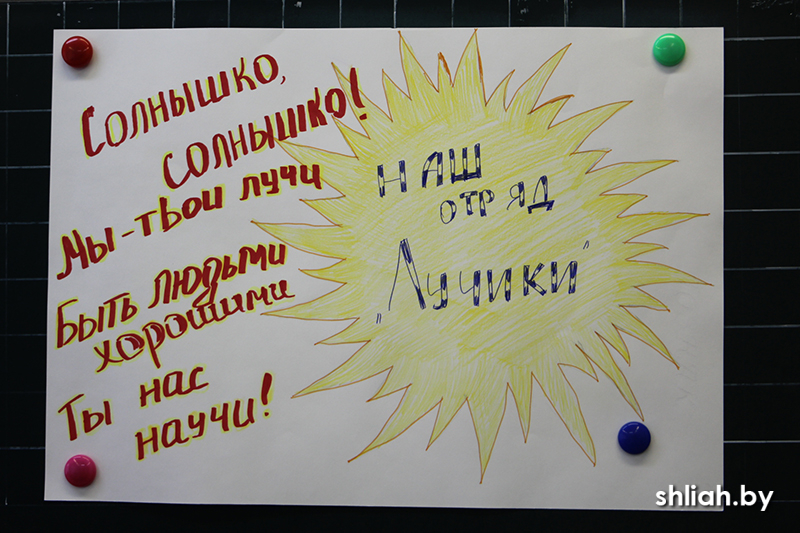 Солнышко,
солнышко!
Мы-твои лучи
Быть людьми
хорошими
Ты нас
научи!
наш
отряд
„Лучики"
shliah.by